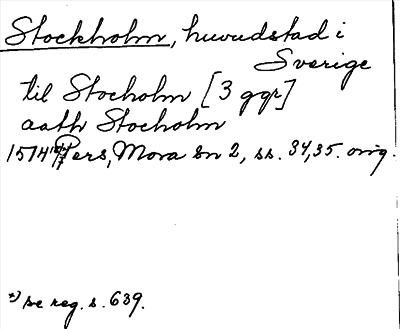 Stockholm, huvudstad i
Sverige
til Stocholm [3 ggr]
aath Stocholm
1514 *) Pers, Mora sn 2, ss. 34, 35. orig.
*) se reg. s. 639.